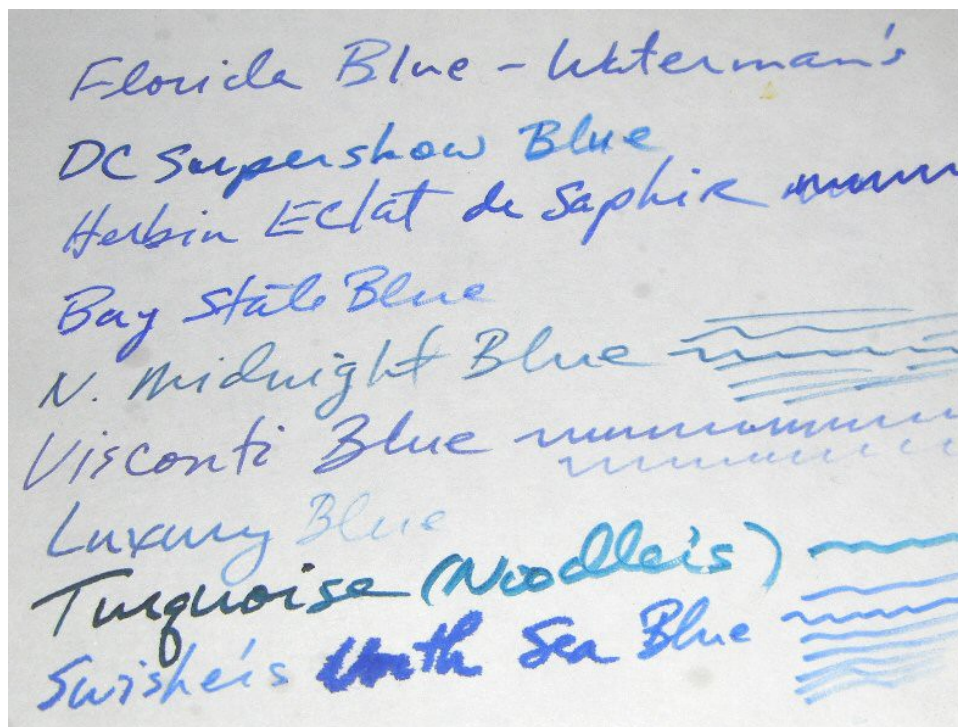 Florida Blue - Waterman's
DC Supershow Blue
Herbin Eclat de Saphir
Bay State Blue
N. Midnight Blue
Visconti Blue
Luxury Blue
Turquoise (Noodle's)
Swisher's North Sea Blue